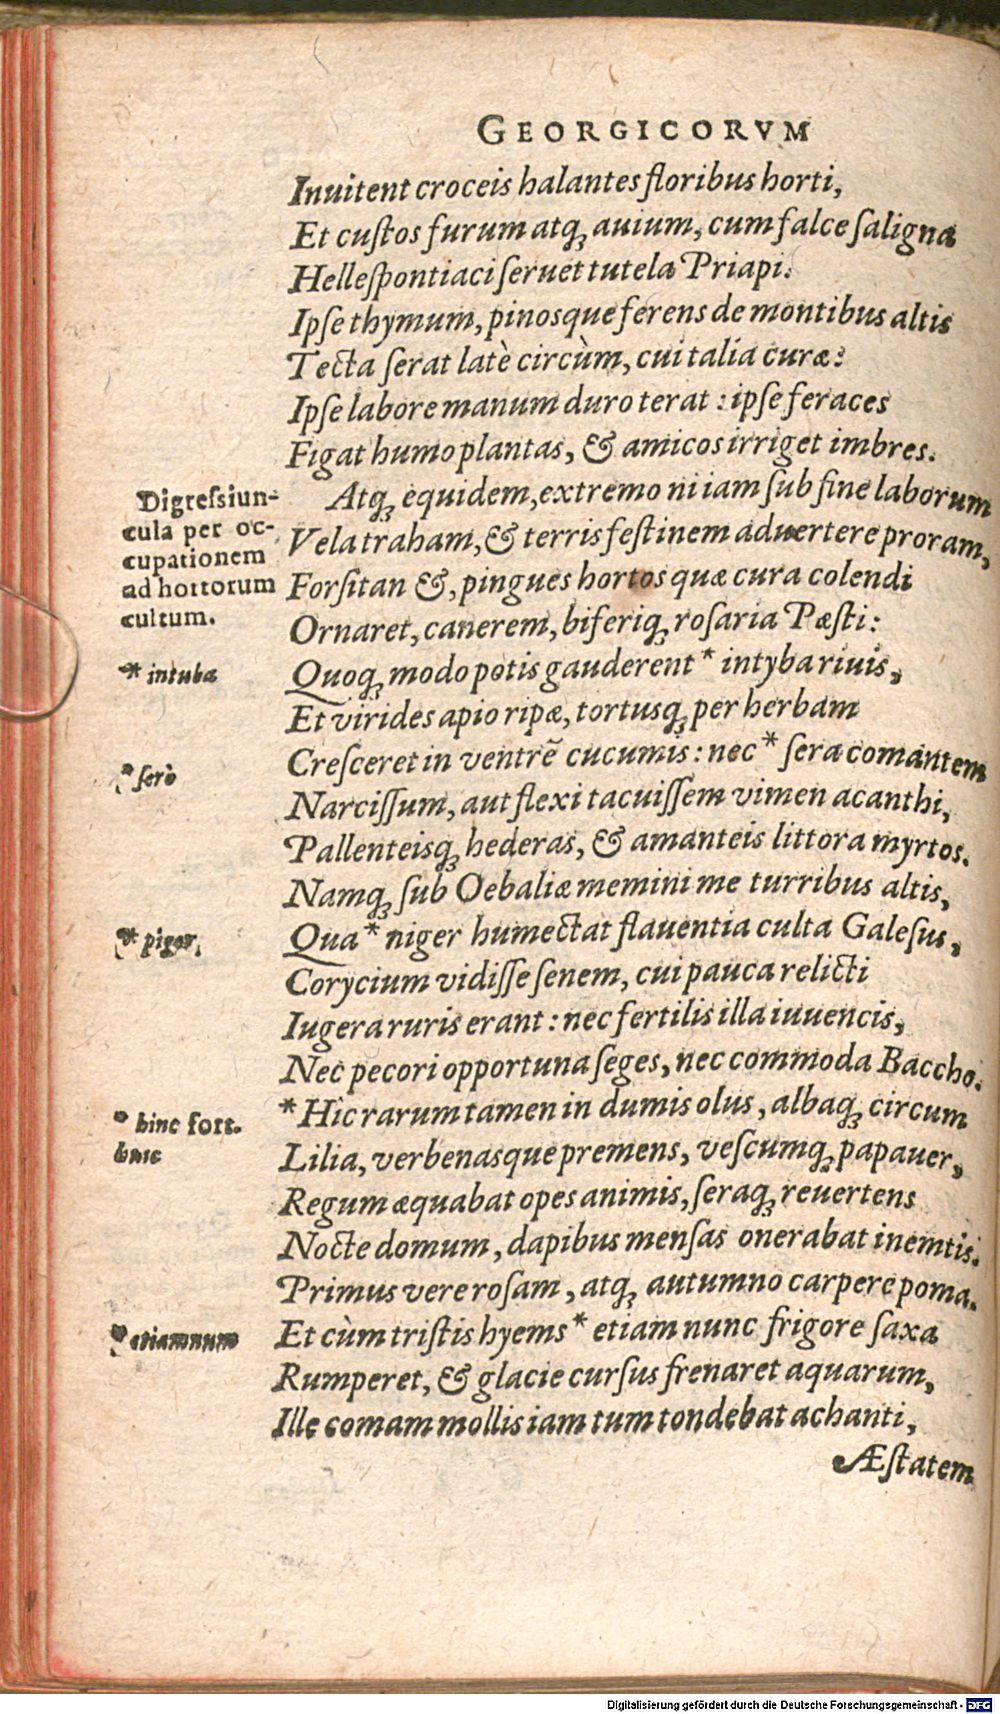 GEORGICORVM
Inuitent croceis halantes floribus horti,
Et cuſtos furum atq́ꝫ auium, cum falce ſaligna
Helleſpontiaci ſeruet tutela Priapi.
Ipſe thymum, pinosque ferens de montibus altis
Tecta ſerat latè circùm, cui talia curæ:
Ipſe labore manum duro terat : ipſe feraces
Figat humo plantas, & amicos irriget imbres.
Digreſsiun-
cula per oc-
cupationem
ad hortorum
cultum.
Atqꝫ equidem, extremo ni iam ſub fine laborum
Vela traham, & terris feſtinem aduertere proram,
Forſitan &, pingues hortos quæ cura colendi
Ornaret, canerem, biferiqꝫ roſaria Pæſti:
* intuba
Quoqꝫ modo potis gauderent * intyba riuis,
Et virides apio ripæ, tortusqꝫ per herbam
* ſerò
Creſceret in ventrē cucumis: nec * ſera comantem
Narciſſum, aut flexi tacuiſſem vimen acanthi,
Pallenteisqꝫ hederas, & amanteis littora myrtos.
Namqꝫ ſub Oebaliæ memini me turribus altis,
* piger.
Qua * niger humectat flauentia culta Galeſus,
Corycium vidiſſe ſenem, cui pauca relicti
Iugera ruris erant: nec fertilis illa iuuencis,
Nec pecori opportuna ſeges, nec commoda Baccho.
* hinc fort.
huic
* Hic rarum tamen in dumis olus, albaqꝫ circum
Lilia, verbenasque premens, veſcumqꝫ papauer,
Regum æquabat opes animis, ſeraqꝫ reuertens
Nocte domum, dapibus menſas onerabat inemtis.
Primus vere roſam, atqꝫ autumno carpere poma.
* etiamnum
Et cùm triſtis hyems * etiam nunc frigore ſaxa
Rumperet, & glacie curſus frenaret aquarum,
Ille comam mollis iam tum tondebat achanti,
Æſtatem
Digitalisierung gefördert durch die Deutsche Forschungsgemeinschaft - DFG